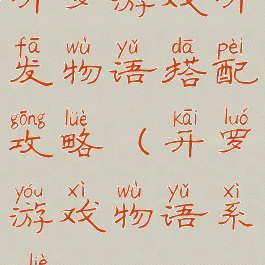 fā wù yǔ dā pèi
发物语搭配
gōng lüè kāi luó
攻略（开罗
yóu xì wù yǔ xì
游戏物语系
liè